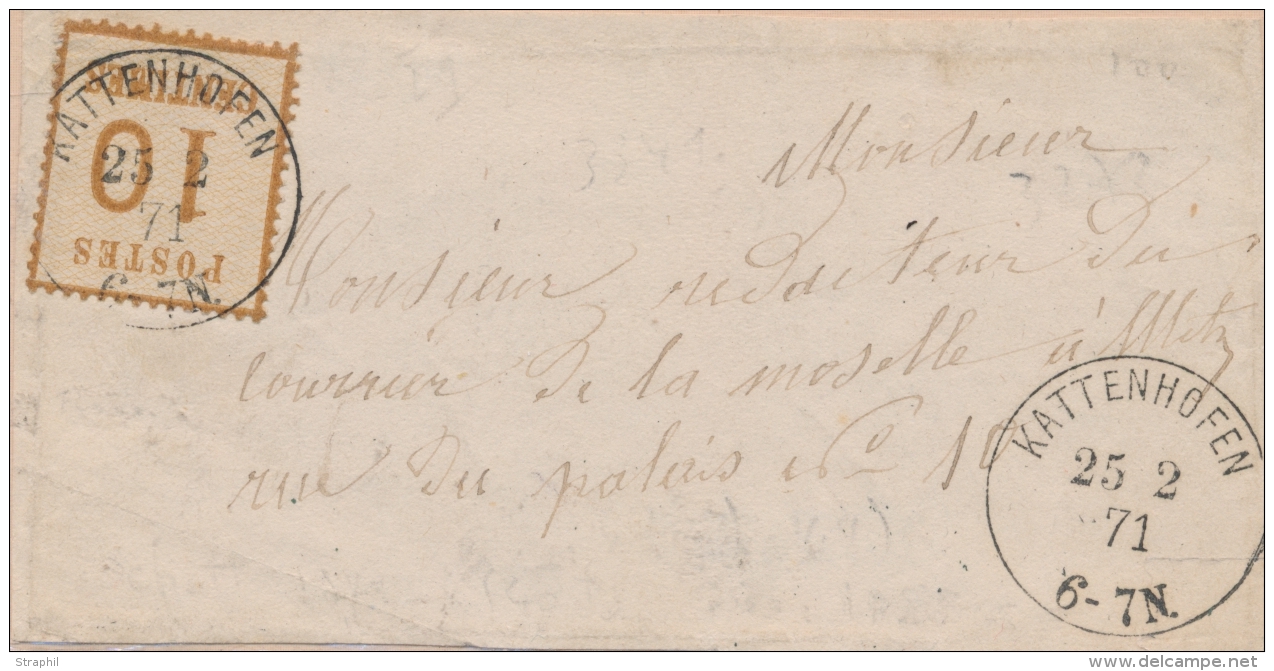 KATTENHOFEN
25 2
71
6-7N.
POSTES
10
CENTIMES
Monsieur
Monsieur redacteur du
courrier de la moselle à Metz
rue du palais No 10
KATTENHOFEN
25 2
71
6-7N.
Straphil
delcampe.net